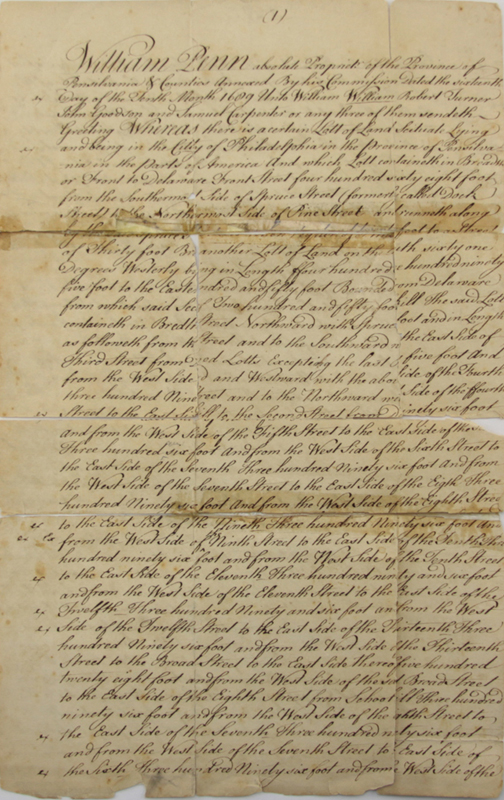 (1)
William Penn absolute Propriet of the Province of
Pensilvania & Counties Annexed By his Commission Dated the sixteenth
Day of the Tenth Month 1689 Unto William William Robert Turner
John Goodson and Samuel Carpenter or any three of them sendeth
Greeting Whereas there is a certain Lott of Land Scituate Lying
and being in the City of Philadelphia in the Province of Pensilva-
nia in the parts of America And which Lott containeth in Breadth
or Front to Delaware Front Street four hundred sixty eight foot
from the Southermost Side of Spruce Street (formerly called Dock
Street) to the Northermost Side of Pine Street and runneth along
foot to a Street
of Thirty foot Br another Lott of Land on the with sixty one
Degrees Westerly being in Length ffour hundred a hundred ninety
five foot to the East ndred and fifty foot Bounded om Delaware
from which said Sec Two hundred and fifty foo ell The said Lott
containeth in Bredth Street Northward with Spruce foot and in Length
as followeth from th Street and to the Southward n the East Side of
Third Street from ned Lotts Excepting the last five foot And
from the West Side d and Westward with the abo ide of the Fourth
three hundred Nine reet and to the Northward wi Side of the ffourth
Street to the East side ly to the Second Street from inety six foot
And from the West Side of the Fifth Street to the East Side of the
Three hundred six foot And from the West Side of the Sixth Street to
the East Side of the Seventh Three hundred Ninety six foot And from
the West Side of the Seventh Street to the East Side of the Eigth Three
hundred Ninety six foot And from the West Side of the Eighth Street
to the East Side of the Nineth Three hundred Ninety six foot An
from the West Side of Ninth Street to the East Side of the Tenth Three
hundred ninety six foot and from the West Side of the Tenth Street
to the East Side of the Eleventh Three hundred ninety and six foot
and from the West Side of the Eleventh Street to the East Side of the
Twelfth Three hundred Ninety and six foot an from the West
Side of the Twelfth Street to the East Side of the Thirteenth Three
hundred Ninety six foot and from the West Side of the Thirteenth
Street to the Broad Street to the East Side thereof five hundred
twenty eight foot and from the West Side of the sd Broad Street
to the East Side of the Eighth Street from Schoolkill Three hundred
ninety six foot and from the West Side of the ahth Street to
the East Side of the Seventh Three hundred ninety six foot
and from the West Side of the Seventh Street to East Side of
the Sixth Three hundred Ninety six foot and from West Side of the